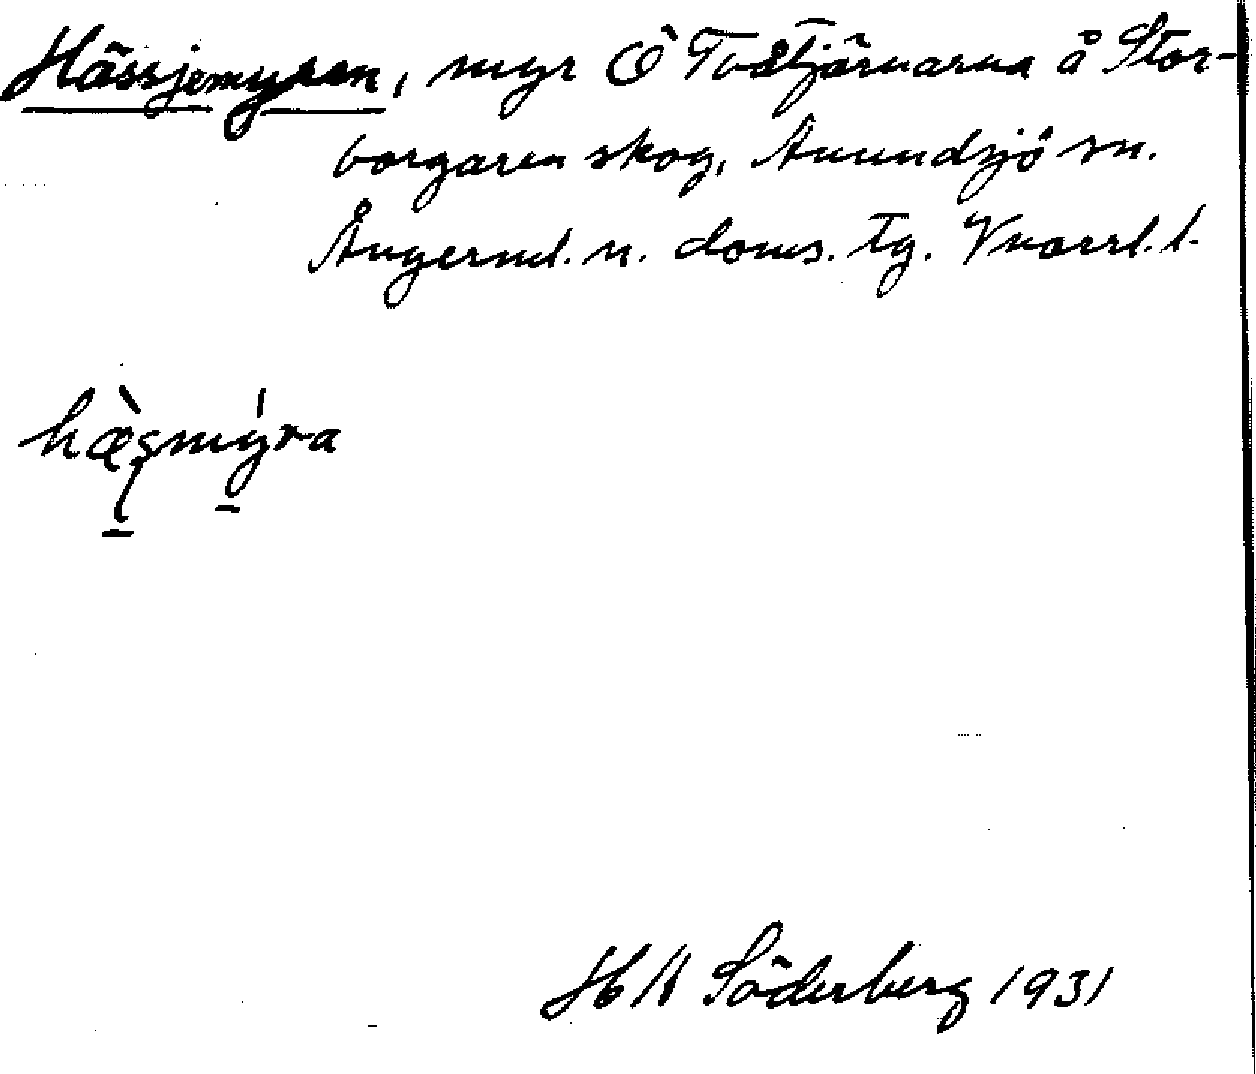 Hässjemyren, myr Ö Tvåtjärnarna å Stor-
borgaren skog, Anundsjö sn.
Ångerml. n. doms. tg. Vnorrl. l.
hæ̀smy̆́ra
H Söderberg 1931